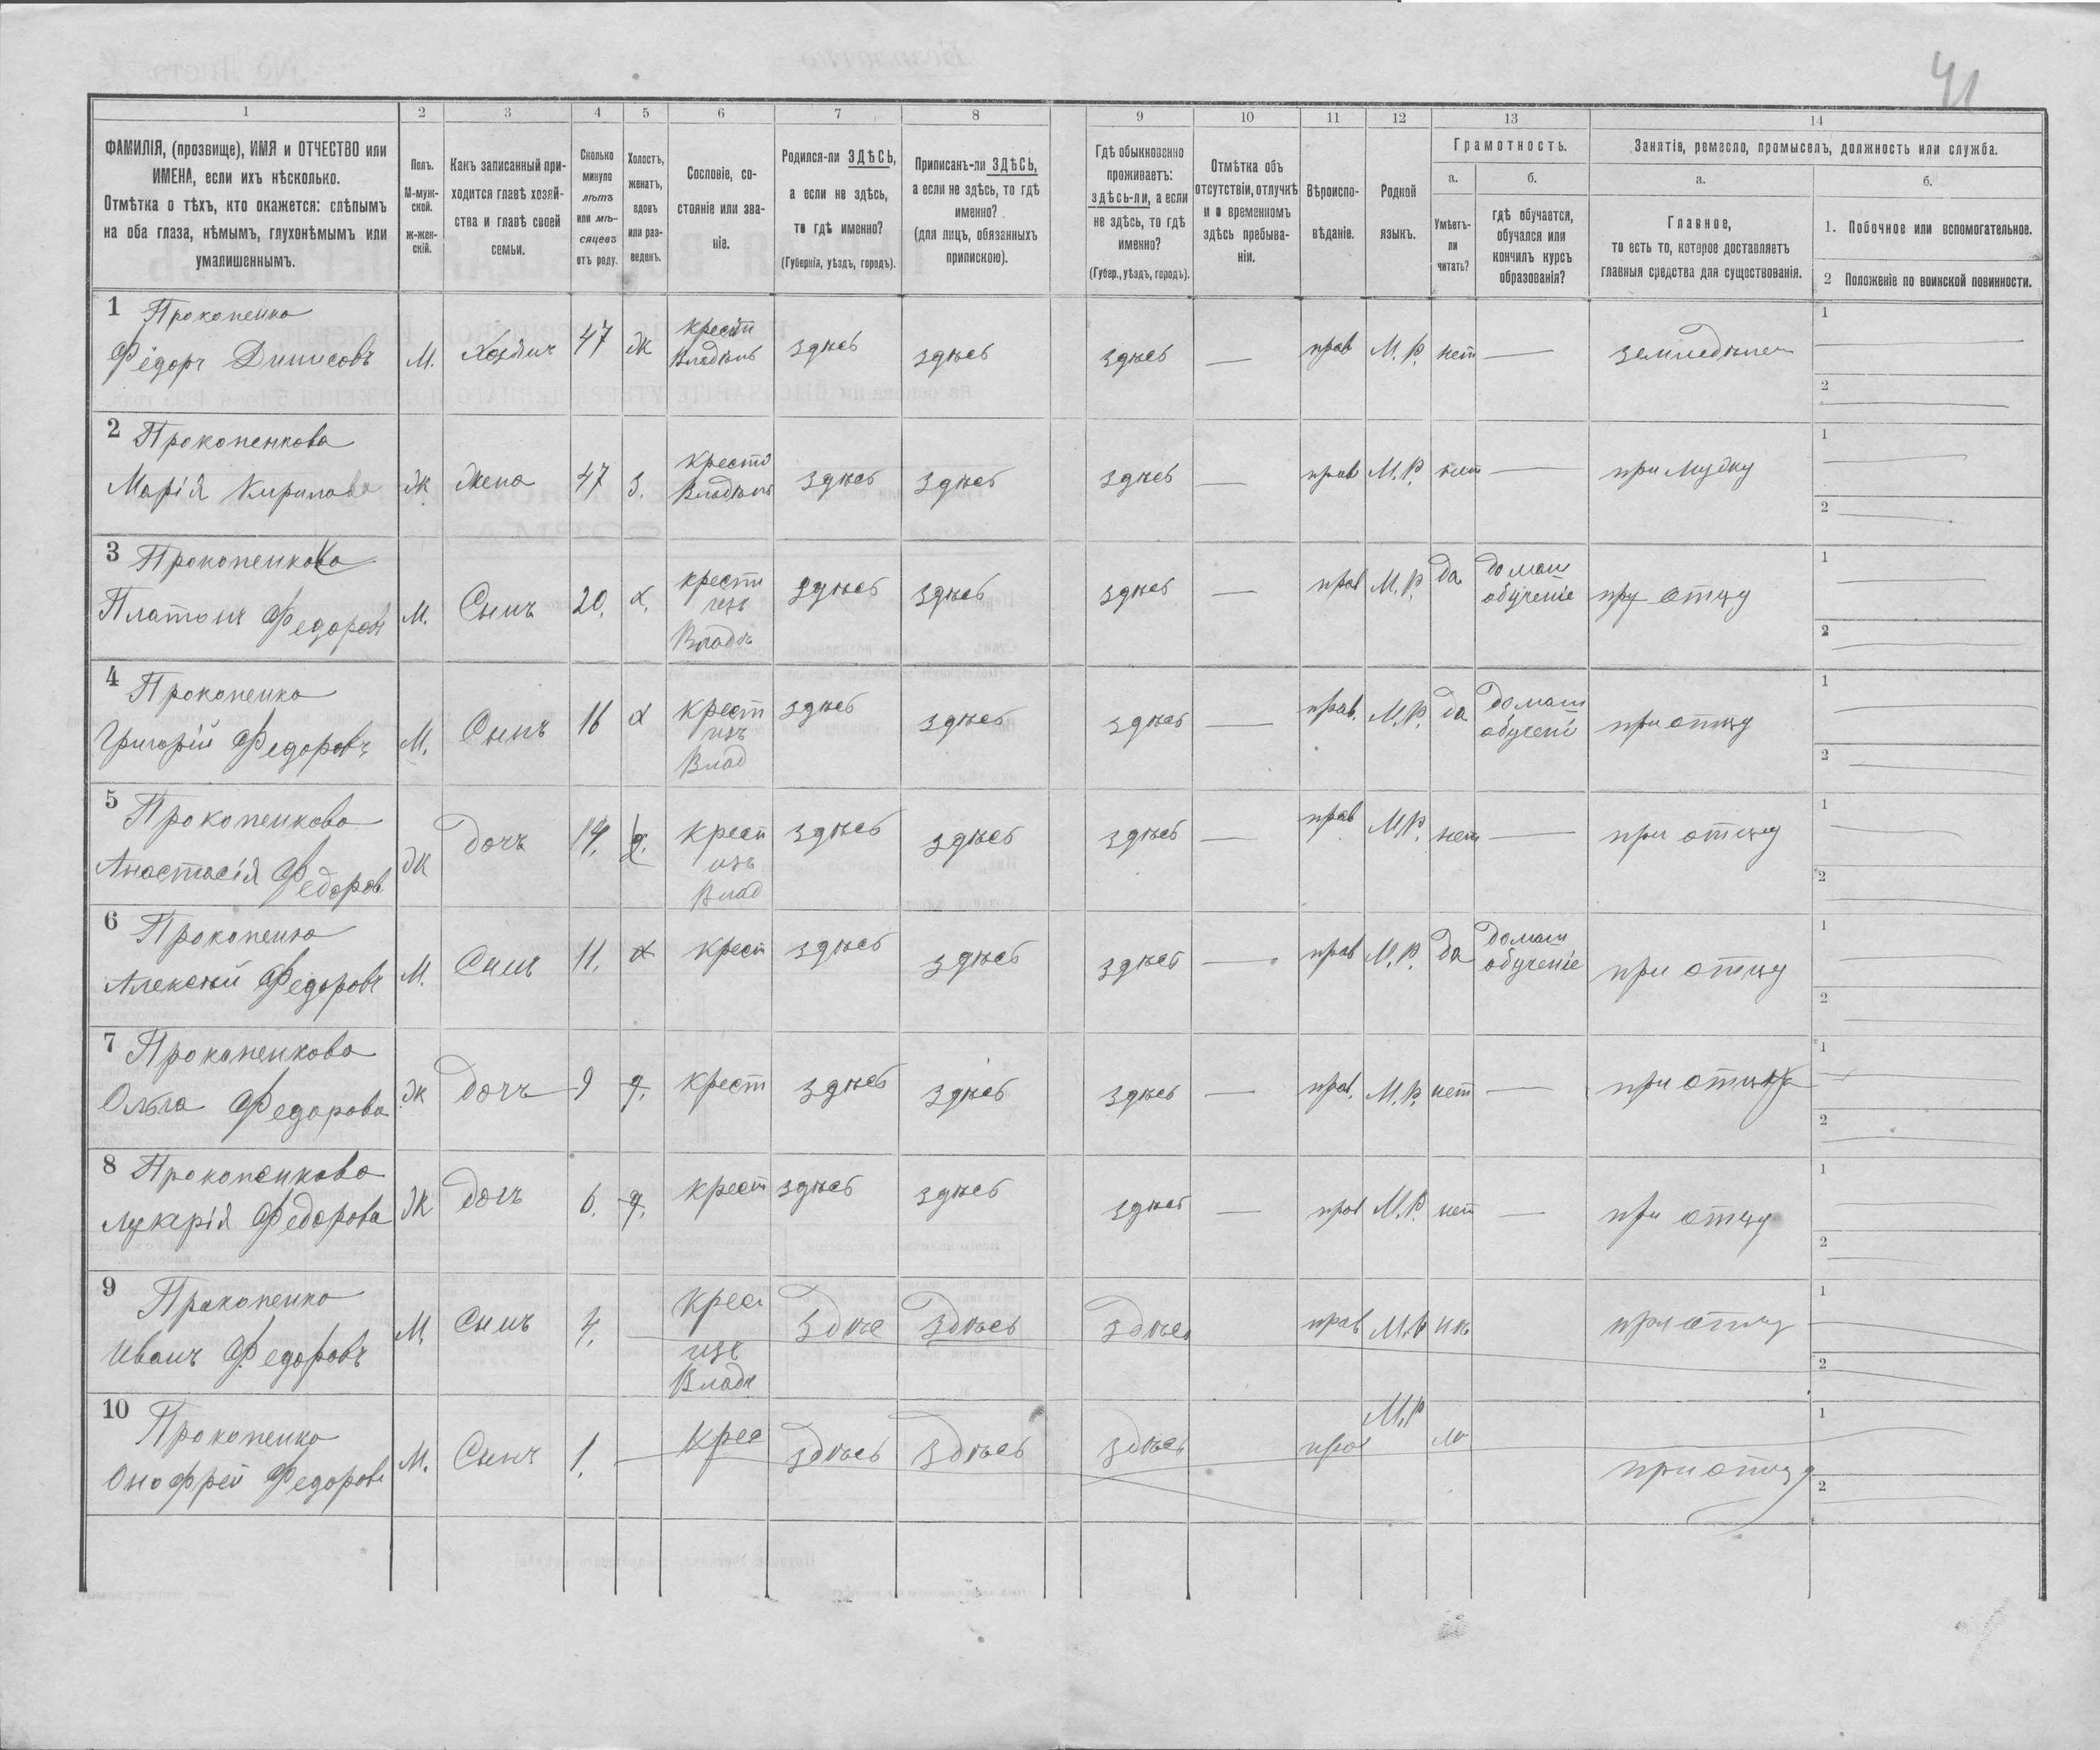 41
1 2 3 4 5 6 7 8 9 10 11 12 13 14
ФАМИЛІЯ, (прозвище), ИМЯ и ОТЧЕСТВО или
ИМЕНА, если ихъ нѣсколько.
Отмѣтка о тѣхъ, кто окажется: слѣпымъ
на оба глаза, нѣмымъ, глухонѣмымъ или
умалишеннымъ.
Полъ.
М-муж-
ской.
ж-жен-
скій.
Какъ записанный при-
ходится главѣ хозяй-
ства и главѣ своей
семьи.
Сколько
минуло
лѣтъ
или мѣ-
сяцевъ
отъ роду.
Холостъ,
женатъ,
вдовъ
или раз-
веденъ.
Сословіе, со-
стояніе или зва-
ніе.
Родился-ли ЗДѢСЬ,
а если не здѣсь,
то гдѣ именно?
(Губернія, уѣздъ, городъ).
Приписанъ-ли ЗДѢСЬ,
а если не здѣсь, то гдѣ
именно?
(для лицъ, обязанныхъ
припискою).
Гдѣ обыкновенно
проживаетъ:
здѣсь-ли, а если
не здѣсь, то гдѣ
именно?
(Губер., уѣздъ, городъ).
Отмѣтка объ
отсутствіи, отлучкѣ
и о временномъ
здѣсь пребыва-
ніи.
Вѣроиспо-
вѣданіе.
Родной
языкъ.
Грамотность.
а.
Умѣетъ-
ли
читать?
б.
гдѣ обучается,
обучался или
кончилъ курсъ
образованія?
Занятіе, ремесло, промыселъ, должность или служба.
а.
Главное,
то есть то, которое доставляетъ
главныя средства для существованія.
б.
1. Побочное или вспомогательное.
2 Положеніе по воинской повинности.
1 Прокопенко
Фёдоръ Динисовъ М. Хозяинъ 47 Ж крестн Владѣнь здѣсь здѣсь здѣсь — прав М. Р. нет — земледѣлец
1
2
2 Прокопенкова
Марія Кирилова Ж Жена 47 З. крестн Владѣнь здѣсь здѣсь здѣсь — прав М. Р. нет — при мужу
1
2
3 Прокопенкова
Платонъ Федоров М. Сынъ 20. х. крестн изъ Влад здѣсь здѣсь здѣсь — прав М. Р. да домаш обученіе при отцу
1
2
4 Прокопенко
Григорій Федоровъ М. Сынъ 16 х крест изъ Влад здѣсь здѣсь здѣсь — прав. М. Р. да домаш обучені при отцу
1
2
5 Прокопенкова
Анастасія Федоров Ж дочъ 14. крест изъ Влад здѣсь здѣсь здѣсь — прав М. Р. нет — при отцу
1
2
6 Прокопенко
Алексѣй Федоровъ М. Сынъ 11. х крест здѣсь здѣсь здѣсь — прав М. Р. да домаш обученіе при отцу
1
2
7 Прокопенкова
Ольга Федорова Ж дочъ 9 крест здѣсь здѣсь здѣсь — прав. М. Р. нет — при отцу
1
2
8 Прокопенкова
Лукерія Федорова Ж дочъ 6. крест здѣсь здѣсь здѣсь — прав М. Р. нет — при отцу
1
2
9 Прокопенко
Иванъ Федоровъ М. Сынъ 4. — крес изъ Влад Здѣсь Здѣсь Здѣсь прав М. Р при отцу
1
2
10 Прокопенко
Онофрей Федоровъ М. Сынъ 1. — крес здѣсь здѣсь здѣсь прав М. Р при отцу
1
2